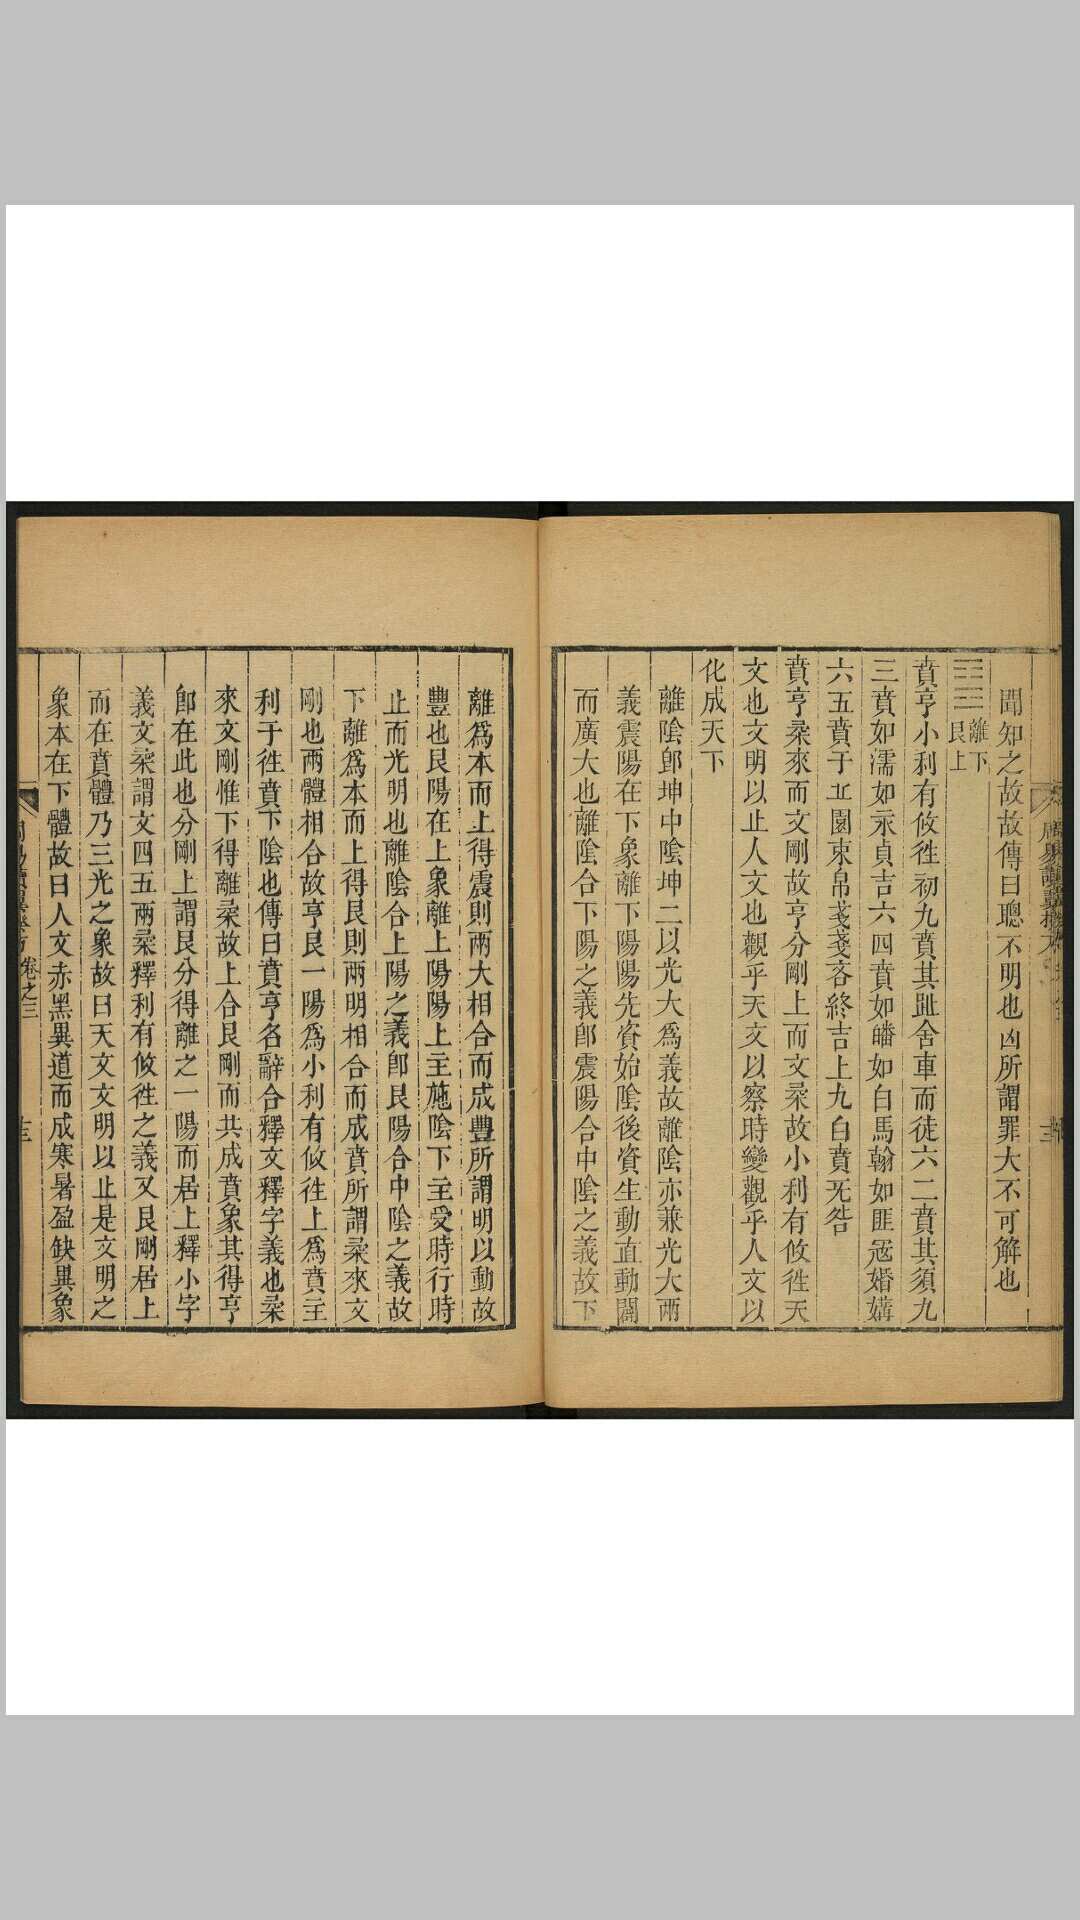 聞知之故故傳曰聰不明也凶所謂罪大不可解也
離下
艮上
賁亨小利有攸徃初九賁其趾舍車而徒六二賁其須九
三賁如濡如永貞吉六四賁如皤如白馬翰如匪寇婚媾
六五賁于丘園束帛戔戔吝終吉上九白賁无咎
賁亨桒來而文剛故亨分剛上而文桒故小利有攸徃天
文也文明以止人文也觀乎天文以察時變觀乎人文以
化成天下
離陰卽坤中陰坤二以光大爲義故離陰亦兼光大兩
義震陽在下象離下陽陽先資始陰後資生動直動闢
而廣大也離陰合下陽之義卽震陽合中陰之義故下
離爲本而上得震則兩大相合而成豐所謂明以動故
豐也艮陽在上象離上陽陽上主施陰下主受時行時
止而光明也離陰合上陽之義卽艮陽合中陰之義故
下離爲本而上得艮則兩明相合而成賁所謂桒來文
剛也兩體相合故亨艮一陽爲小利有攸徃上爲賁主
利于徃賁下陰也傳曰賁亨名辭合釋文釋字義也桒
來文剛惟下得離桒故上合艮剛而共成賁象其得亨
卽在此也分剛上謂艮分得離之一陽而居上釋小字
義文桒謂文四五兩桒釋利有攸徃之義又艮剛居上
而在賁體乃三光之象故曰天文文明以止是文明之
象本在下體故曰人文赤黑異道而成寒暑盈缺異象
卷之三